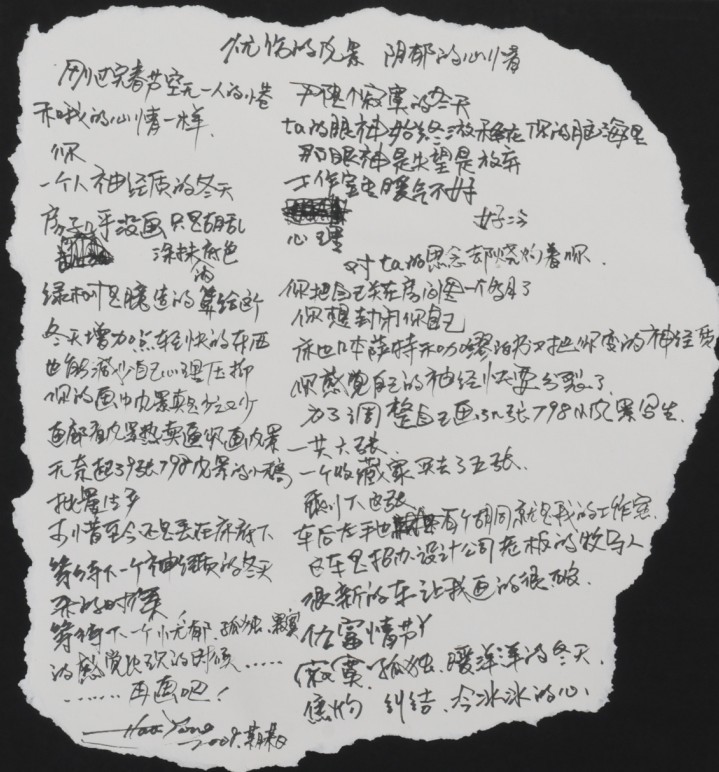 忧伤的风景 阴郁的心情
刚过完春节空无一人的小巷
和我的心情一样
你
一个人神经质的冬天
房子几乎没画 只是胡乱
涂抹底色
绿树是臆造的
冬天增加点轻快的东西
也能减少自己心理压抑
你的画中风景真是少之又少
画廊看风景热卖逼你画风景
无奈起39张798风景的小稿
批量生产
可惜至今还是丢在床底下
等待下一个神经质的冬天
来的时候
等待下一个忧郁 孤独 寂寞
的感觉出现的时候……
……再画吧！
2009
个寂寞的冬天
ta的眼神始终放在你的脑海里
那眼神是失望是放弃
工作室里暖气不好
好冷
心理
对ta的思念却烧灼着你.
你把自己关在房间里一个多月了
你想封闭你自己
床边几本萨特和的书又把你变的神经质
你感觉自己的神经快要分裂了
为了调整自己画了几张798的风景写生.
一共六张.
一个收藏家买去了五张.
剩下这张
车后左手边有个胡同就是我的工作室.
这车是招办设计公司老板的牧马人
很新的车让我画的很破.
仇富情节
寂寞. 孤独. 暖洋洋的冬天.
焦灼 纠结. 冷冰冰的心.